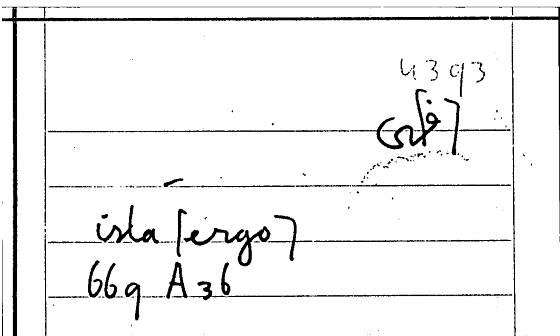 4393
isla [ergo]
669 A36